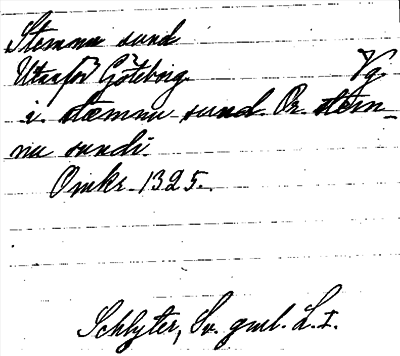 Stemnu sund
Utanför Göteborg. Vg.
i stæmnu sund. Or. stem-
nu sundi.
Omkr. 1325.
Schlyter, Sv. gml. L. I.